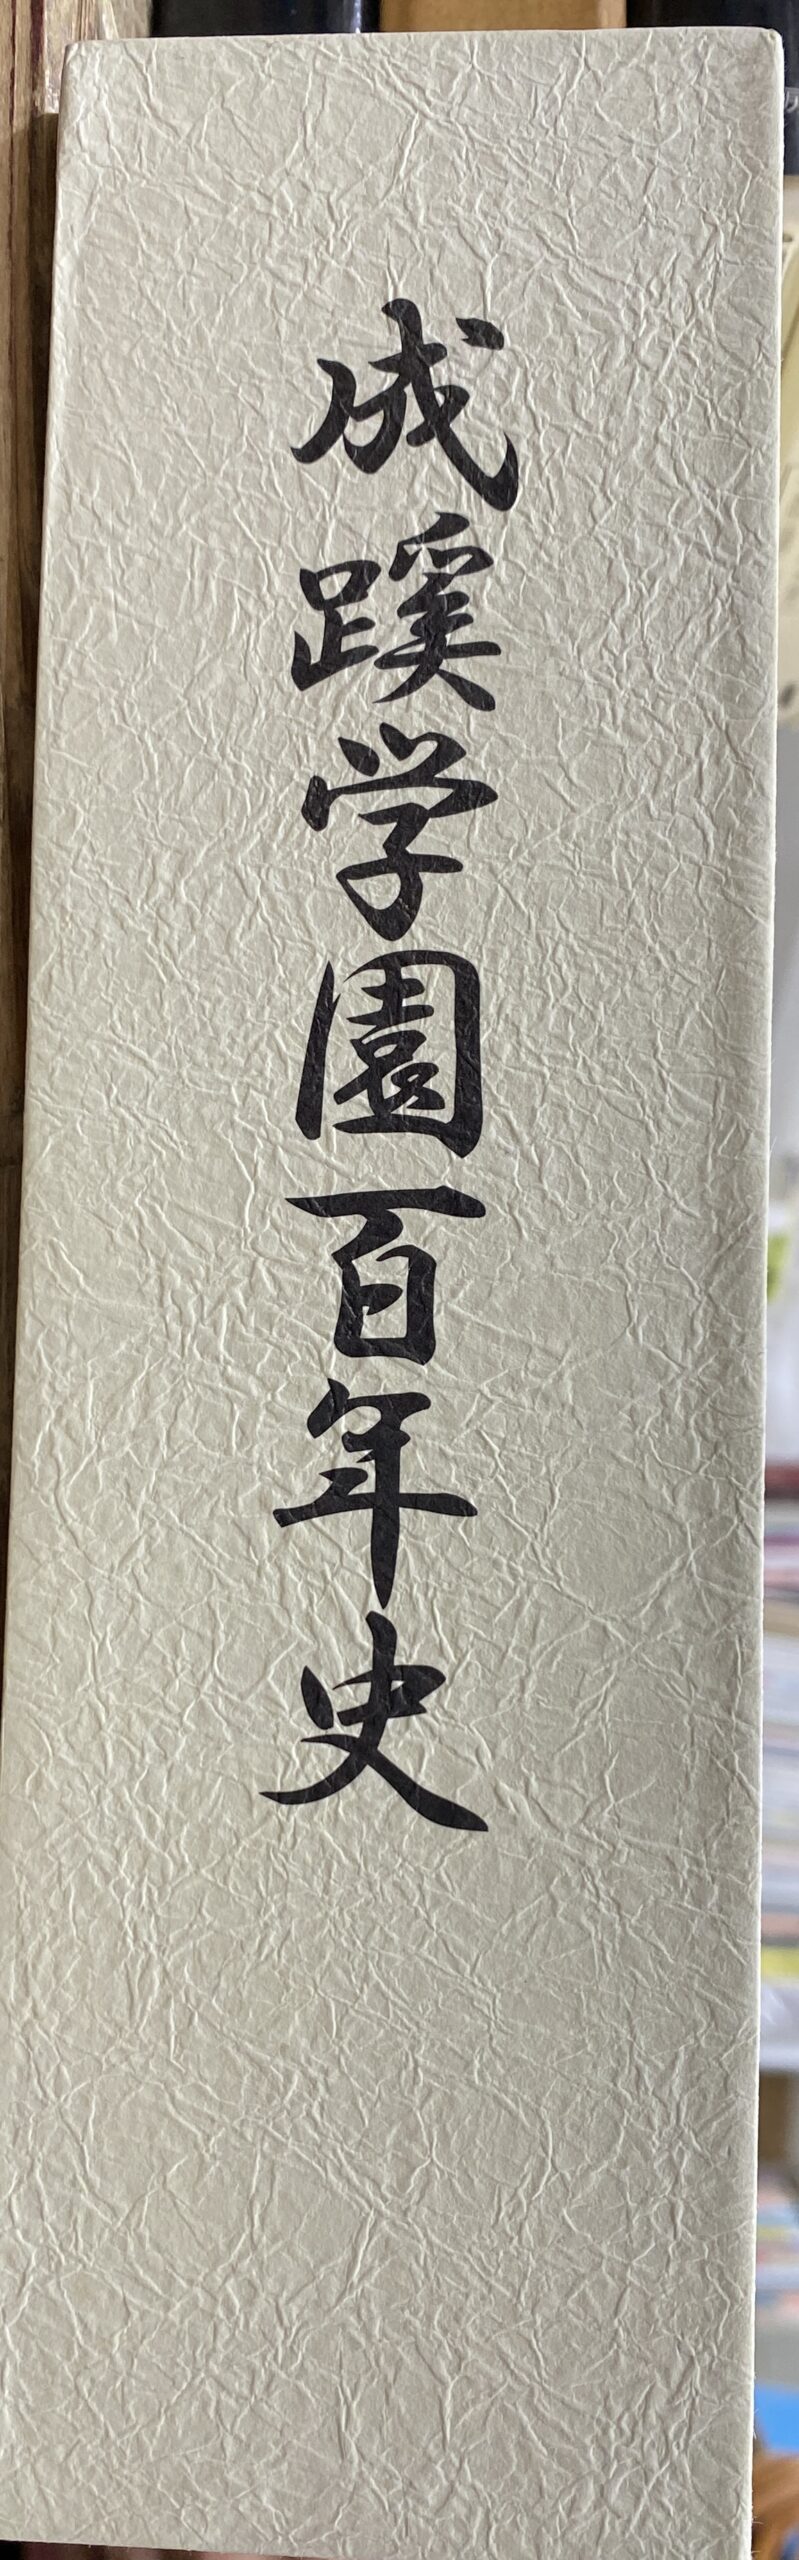 成蹊学園百年史